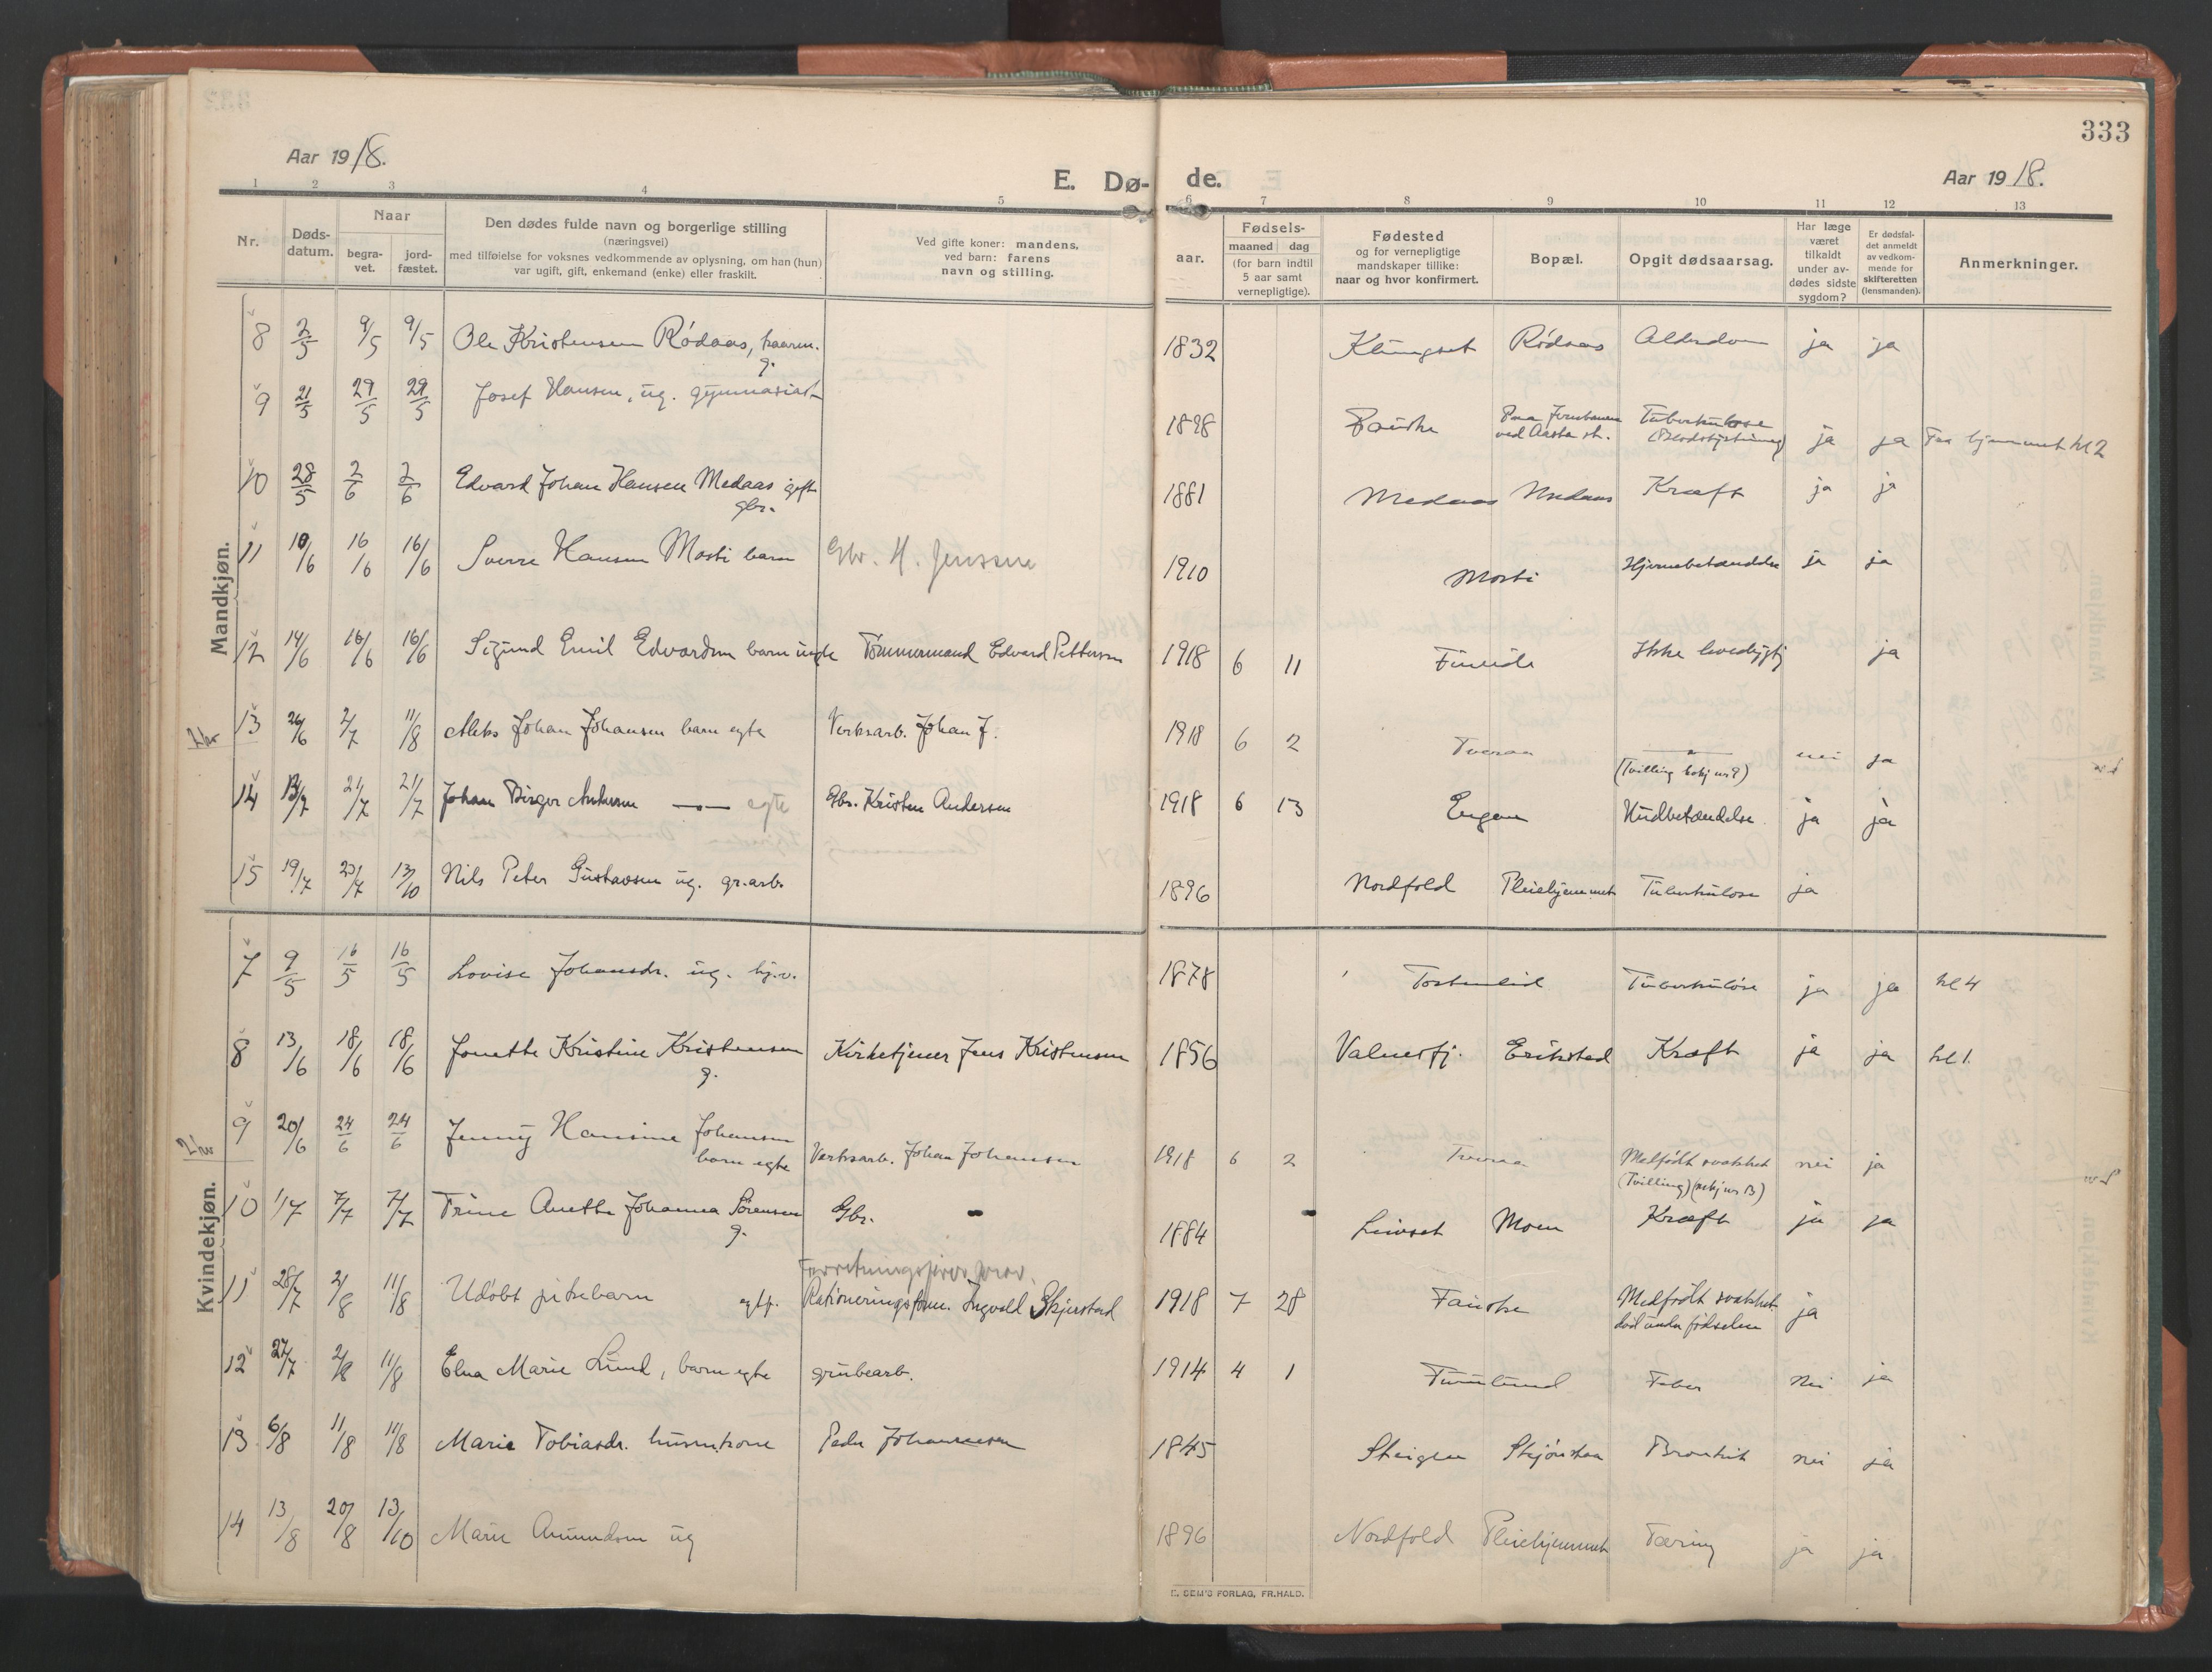 333
Aar 1918.
E. Dø-
de.
Aar 1918.
1 2 3 4 5 6 7 8 9 10 11 12 13
Nr.
Døds-
datum.
Naar
begra-
vet.
jord-
fæstet.
Den dødes fulde navn og borgerlige stilling
(næringsvei)
med tilføielse for voksnes vedkommende av oplysning, om han (hun)
var ugift, gift, enkemand (enke) eller fraskilt.
Ved gifte koner: mandens,
ved barn: farens
navn og stilling.
Fødsels-
aar.
maaned dag
(for barn indtil
5 aar samt
vernepligtige).
Fødested
og for vernepligtige
mandskaper tillike:
naar og hvor konfirmert.
Bopæl.
Opgit dødsaarsag.
Har læge
været
tilkaldt
under av-
dødes sidste
sygdom?
Er dødsfal-
det anmeldt
av vedkom-
mende for
skifteretten
(lensmanden).
Anmerkninger.
Mandkjøn.
8 2/5 9/5 9/5 Ole Kristensen Rødaas, kaarm. g. 1832 Klungset Rødaas Alderdom ja ja
9 21/5 29/5 29/5 Josef Hansen, ug. gymnasiast 1898 Fauske Paa Jernbanen ved Aasta st. Tuberkulose (Blodstyrtning) ja ja Fra hjemmet kl 2
10 28/5 2/6 2/6 Edvard Johan Hansen Medaas gift gbr. 1881 Medaas Medaas Kræft ja ja
11 10/6 16/6 16/6 Sverre Hansen Mosti barn Gbr. H. Jenssen 1910 Mosti Hjernebetændelse ja ja
12 14/6 16/6 16/6 Sigund Emil Edvardsen barn uegte Tømmermand Edvard Pettersen 1918 6 11 Fineide Ikke levedygtig ja
13 26/6 2/7 11/8 Aleks Johan Johansen barn egte Verksarb. Johan J. 1918 6 2 Tveraa — " — (Tvilling kvkj nr 9) nei ja
14 13/7 21/7 21/7 Johan Birger Andersen — " — egte Gbr. Kristen Andersen 1918 6 13 Engan Hudbetændelse ja ja
15 19/7 23/7 13/10 Nils Peter Gustavsen ug. gr.arb. 1896 Nordfold Pleiehjemmet Tuberkulose ja
Kvindekjøn.
7 9/5 16/5 16/5 Lovise Johansdr. ug. hj.v. 1878 Tostenlid Tuberkulose ja ja kl 4
8 13/6 18/6 18/6 Jonette Kristine Kristensen g. Kirketjener Jens Kristensen 1856 Valnesfj. Erikstad Kræft ja ja kl 1.
9 20/6 24/6 24/6 Jenny Hansine Johansen barn egte Verksarb. Johan Johansen 1918 6 2 Tveraa Medfødt svakhet (Tvilling) (mkj nr 13) nei ja
10 1/7 7/7 7/7 Trine Anette Johanna Sørensen g. Gbr. - 1884 Leivset Moen Kræft ja ja
Forretningsfører
11 28/7 2/8 11/8 Udøbt pikebarn egtf. Rationeringsform. Ingvald Skjerstad 1918 7 28 Fauske Medfødt svakhet død under fødselen ja
12 27/7 2/8 11/8 Elna Marie Lund, barn egte grubearb. 1914 4 1 Furulund Feber Nei ja
13 6/8 11/8 11/8 Marie Tobiasdr. husm.kone Peder Johannesen 1845 Steigen Skjønstaa Bronkit nei ja
14 13/8 20/8 13/10 Marie Amundsen ug 1896 Nordfold Pleiehjemmet Tæring ja ja
E. SEM'S FORLAG, FR.HALD.